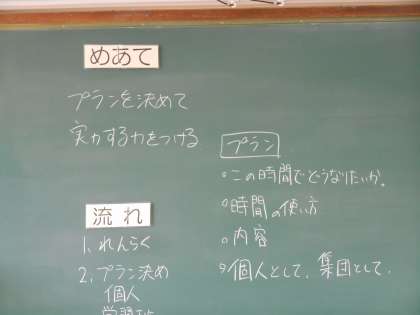 めあて
プランを決めて
実力する力をつける
流れ
1、れんらく
2、プラン決め
個人
プラン
○この時間でどうなりたいか。
○時間の使い方
○内容
○個人として、集団として、